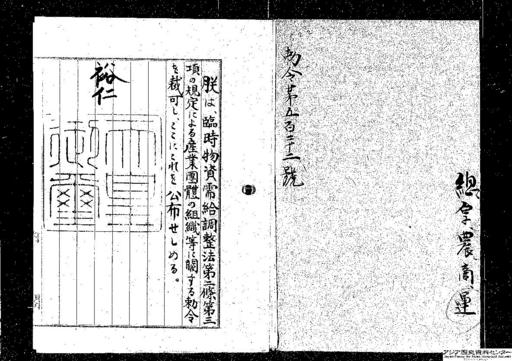 勅令第五百三十二號
總、字、農、商、運
朕は、臨時物資需給調整法第二條第三
項の規定による産業團體の組織等に關する勅令
を裁可し、ここにこれを公布せしめる。
裕仁
天皇御璽
アジア歴史資料センター